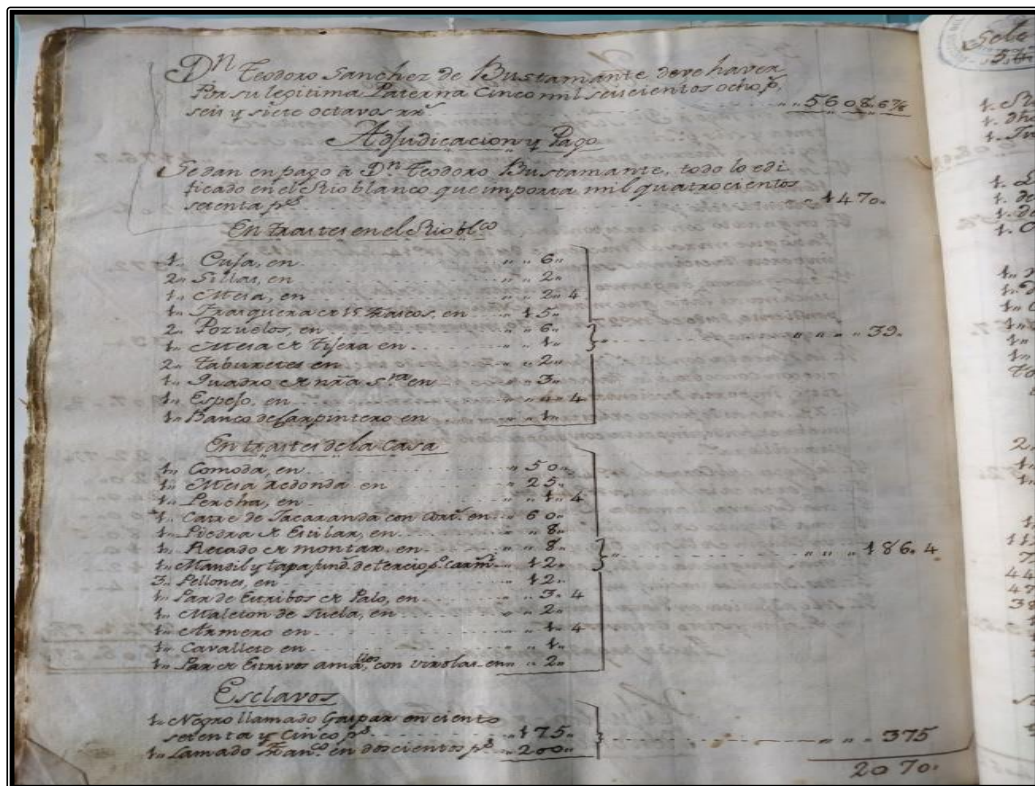 Dn Teodoro Sanchez de Bustamante deve haver
Por su legitima Paterna Cinco mil seiscientos ocho ps.
seis y siete octavos rrs 5608.6⅞
Adjudicacion y Pago
Se dan en pago à Dn Teodoro Bustamante, todo lo edi
ficado en el Rio blanco que importa mil quatrocientos
setenta ps 1470.
En trastes en el Rio blco
1. Cuja, en 6
2. Sillas, en 2
1. Mesa, en 2 4
1. Frasquera de 15 frascos, en 15
2. Pozuelos, en 6
1. Mesa de tijera en 1 39.
2. Taburetes en 2
1. Quadro de nra sra en 3
1. Espejo, en 4
1. Banco de Carpintero en 1
En trastes de la Casa
1. Comoda, en 50
1. Mesa redonda en 25
1. Percha, en 1 4
1. Catre de Jacaranda con en 60
1. Piedra de Estilar, en 8
1. Recado de montar, en 8 186.4
1. Mandil y tapafund. de terciop. carm. 12
3. Pellones, en 12
1. Par de Estribos de Palo, en 3 4
1. Maleton de Suela, en 2
1. Armero en 1 4
1. Cavallete en 1
1. Par de Estrivos con virolas en 2
Esclavos
1. Negro llamado Gaspar en ciento
setenta y Cinco ps 175
1. Lamado Franco en doscientos ps 200 375
2070.